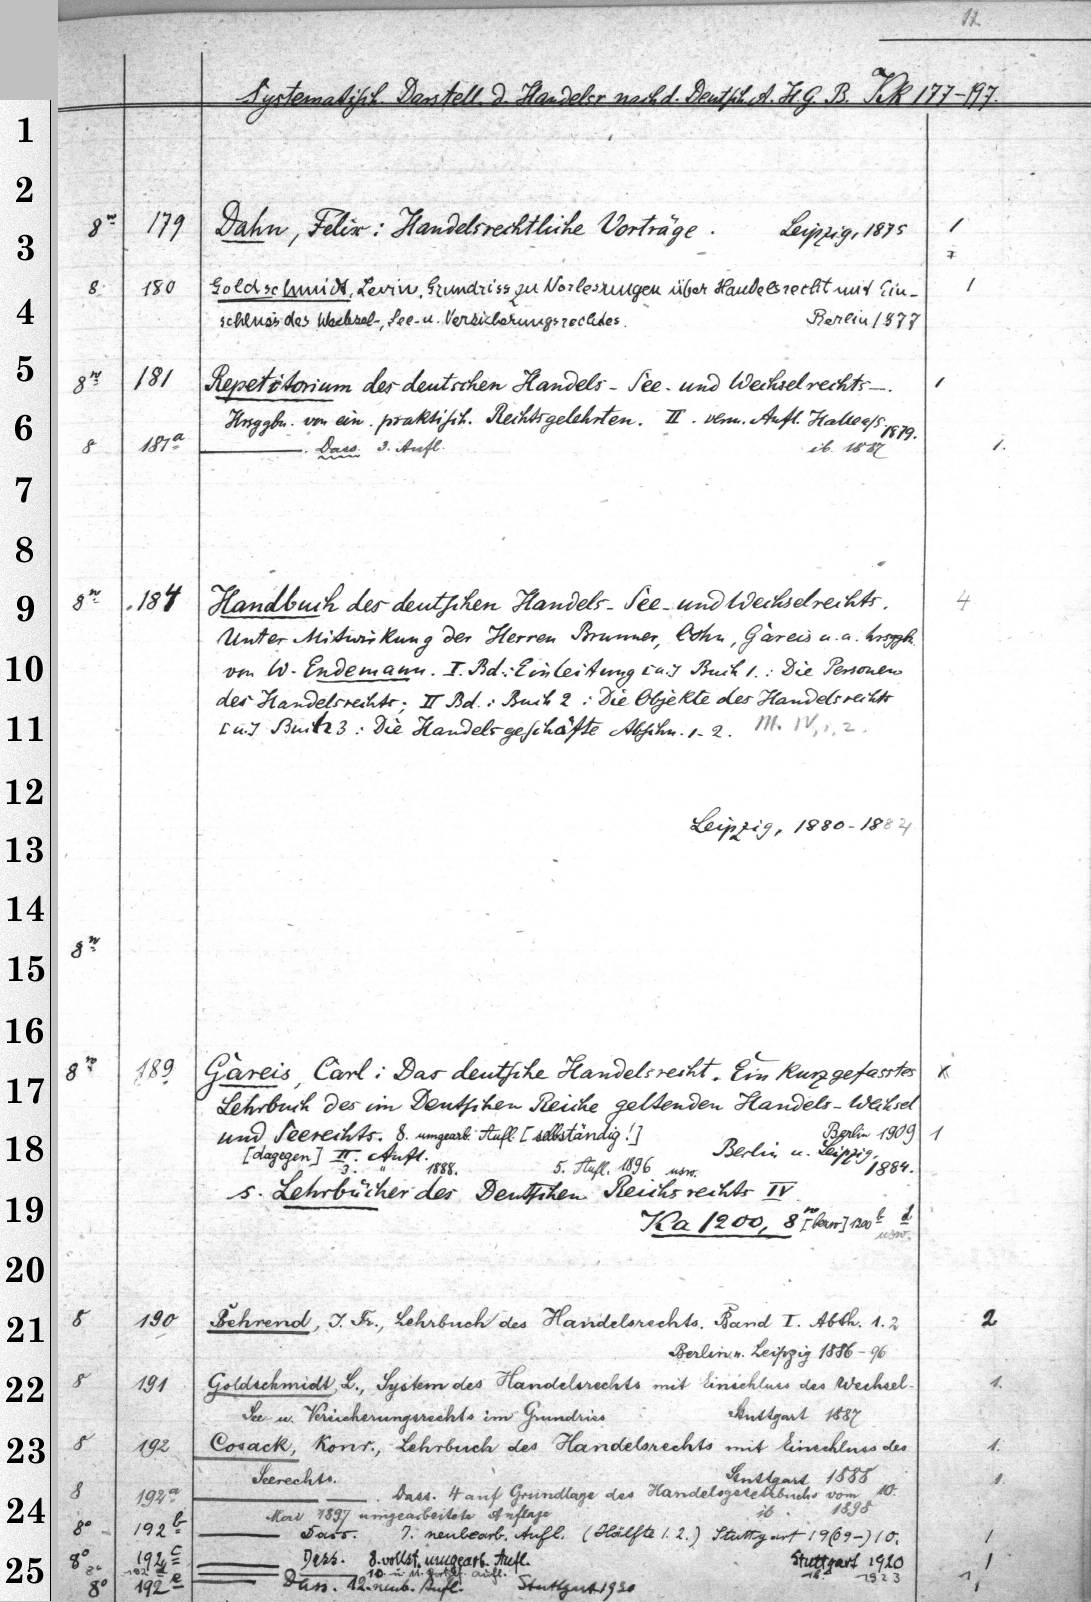 12
Systematisch. Darstell. d. Handelsr nach d. Deutsch. A. H. G. B. Kk 177-197.
1
2
8º 179 Dahn, Felix: Handelsrechtliche Vorträge. Leipzig, 1875 1
3
8. 180 Goldschmidt, Levin, Grundriss zu Vorlesungen über Handelsrecht mit Ein- 1
4 schluss des Wechsel-, See- u. Versicherungsrechtes. Berlin 1877
5 8º 181 Repetitorium des deutschen Handels- See- und Wechselrechts-. 1
6 Hrsggbn. von ein. praktisch. Rechtsgelehrten. II. verm. Aufl. Halle a/S 1879.
8 181a Dass. 3. Aufl. ib. 1887 1.
7
8
9 8º 184 Handbuch des deutschen Handels- See- und Wechselrechts. 4
Unter Mitwirkung der Herren Brunner, Cohn, Gareis u. a. hrsggb.
10 von W. Endemann. I. Bd.: Einleitung [u.] Buch 1.: Die Personen
des Handelsrechts; II Bd.: Buch 2: Die Objekte des Handelsrechts
11 [u.] Buch 3: Die Handelsgeschäfte Abschn. 1-2. III. IV, 1, 2.
12
Leipzig, 1880-1884
13
14
8º
15
16
17 8º 189 Gareis, Carl: Das deutsche Handelsrecht. Ein kurzgefasstes x
Lehrbuch des im Deutschen Reiche geltenden Handels- Wechsel
und Seerechts. 8. umgearb. Aufl. [selbständig!] Berlin 1909 1
18 [dagegen] II. Aufl. Berlin u. Leipzig, 1884.
3. " 1888. 5. Aufl. 1896 usw.
19 s. Lehrbücher des Deutschen Reichsrechts IV
Ka 1200, 8º [bzw] 1200 b d usw.
20
21 8 190 Behrend, J. Fr., Lehrbuch des Handelsrechts. Band I. Abth. 1.2 2
Berlin u. Leipzig 1886-96
22 8 191 Goldschmidt, L., System des Handelsrechts mit Einschluss des Wechsel- 1.
See u. Versicherungsrechts im Grundriss Stuttgart 1887
23 8 192 Cosack, Konr., Lehrbuch des Handelsrechts mit Einschluss des 1.
Seerechts. Stuttgart 1888
8 192a Dass. 4 auf Grundlage des Handelsgesetzbuchs vom 10. 1.
24 Mai 1897 umgearbeitete Auflage ib. 1898
8º 192b Dass. 7. neubearb. Aufl. (Hälfte 1.2.) Stuttgart 19(09-)10. 1
25 8º 192c Dass. 8. vollst. umgearb. Aufl. Stuttgart 1920 1
8º 192d 10. u. Aufl. ib. 1923 1
8º 192e Dass. 12. neub. Aufl. Stuttgart 1930 1